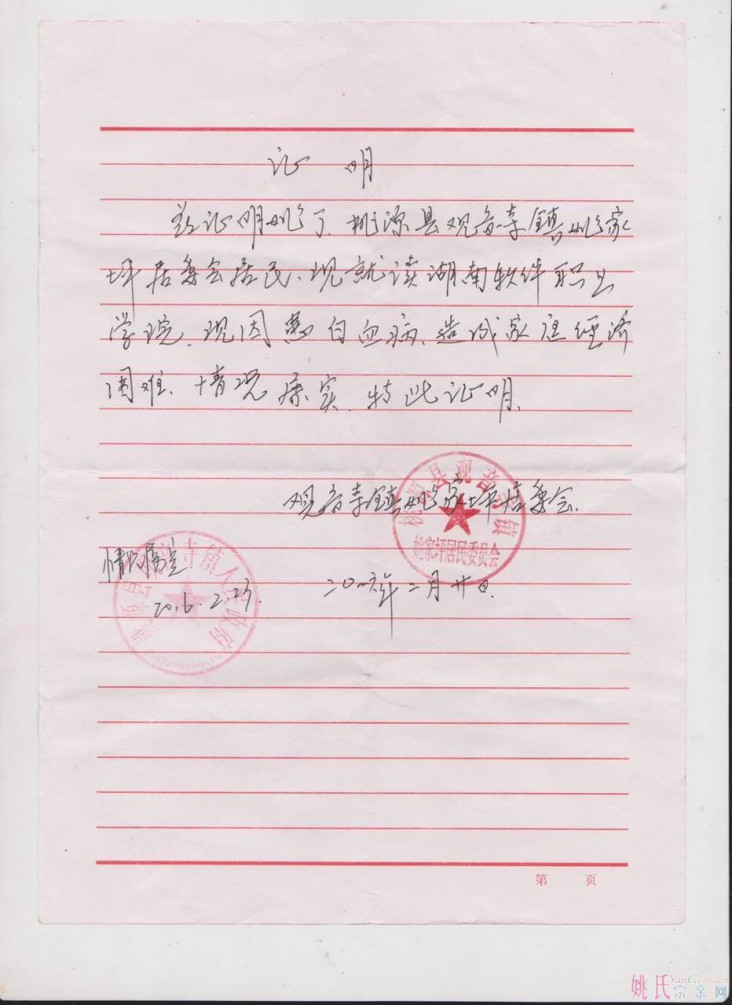 证 明
兹证明姚了、桃源县观音寺镇姚家
坪居委会居民、现就读湖南软件职业
学院、现因患白血病、造成家庭经济
困难、情况属实、特此证明、
观音寺镇姚家坪居委会、
桃源县观音寺镇
姚家坪居民委员会
二0一六年二月廿日、
情况属实
2016.2.23.
桃源县观音寺镇人民政府
第 页
姚氏
宗亲网